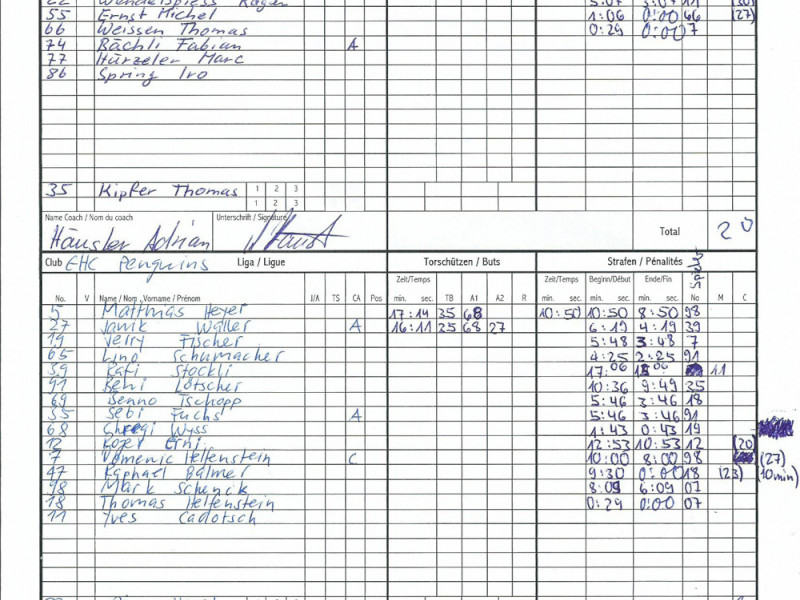 55 Ernst Michel 1:06 0:00 66 (27)
66 Weissen Thomas 0:29 0:00 7
74 Bächli Fabian A
77 Hürzeler Marc
86 Spring Ivo
35 Kipfer Thomas 1 2 3
1 2 3
Name Coach / Nom du coach Unterschrift / Signature
Häusler Adrian Total 20
Club EHC Penguins Liga / Ligue Torschützen / Buts Strafen / Pénalités
Zeit/Temps Zeit/Temps Beginn/Début Ende/Fin Spieler
No. V Name / Nom, Vorname / Prénom J/A TS CA Pos min. sec. TB A1 A2 R min. sec. min. sec. min. sec. No M C
5 Matthias Heyer 17:14 35 68 10:50 10:50 8:50 98
27 Janik Waller A 16:11 25 68 27 6:19 4:19 39
19 Jerry Fischer 5:48 3:48 7
65 Lino Schumacher 4:25 2:25 91
39 Rafi Stöckli 17:06 41
91 Remi Lötscher 10:36 9:49 35
69 Benno Tschopp 5:46 3:46 18
35 Sebi Fuchs A 5:46 3:46 91
68 Wyss 1:43 0:43 19
12 Roger Erni 12:53 10:53 12 (20)
7 Domenic Helfenstein C 10:00 8:00 98 (27)
47 Raphael Balmer 9:30 0:00 18 (23) (10min)
98 Mark Schenck 8:09 6:09 07
18 Thomas Helfenstein 0:29 0:00 07
11 Yves Cadotsch